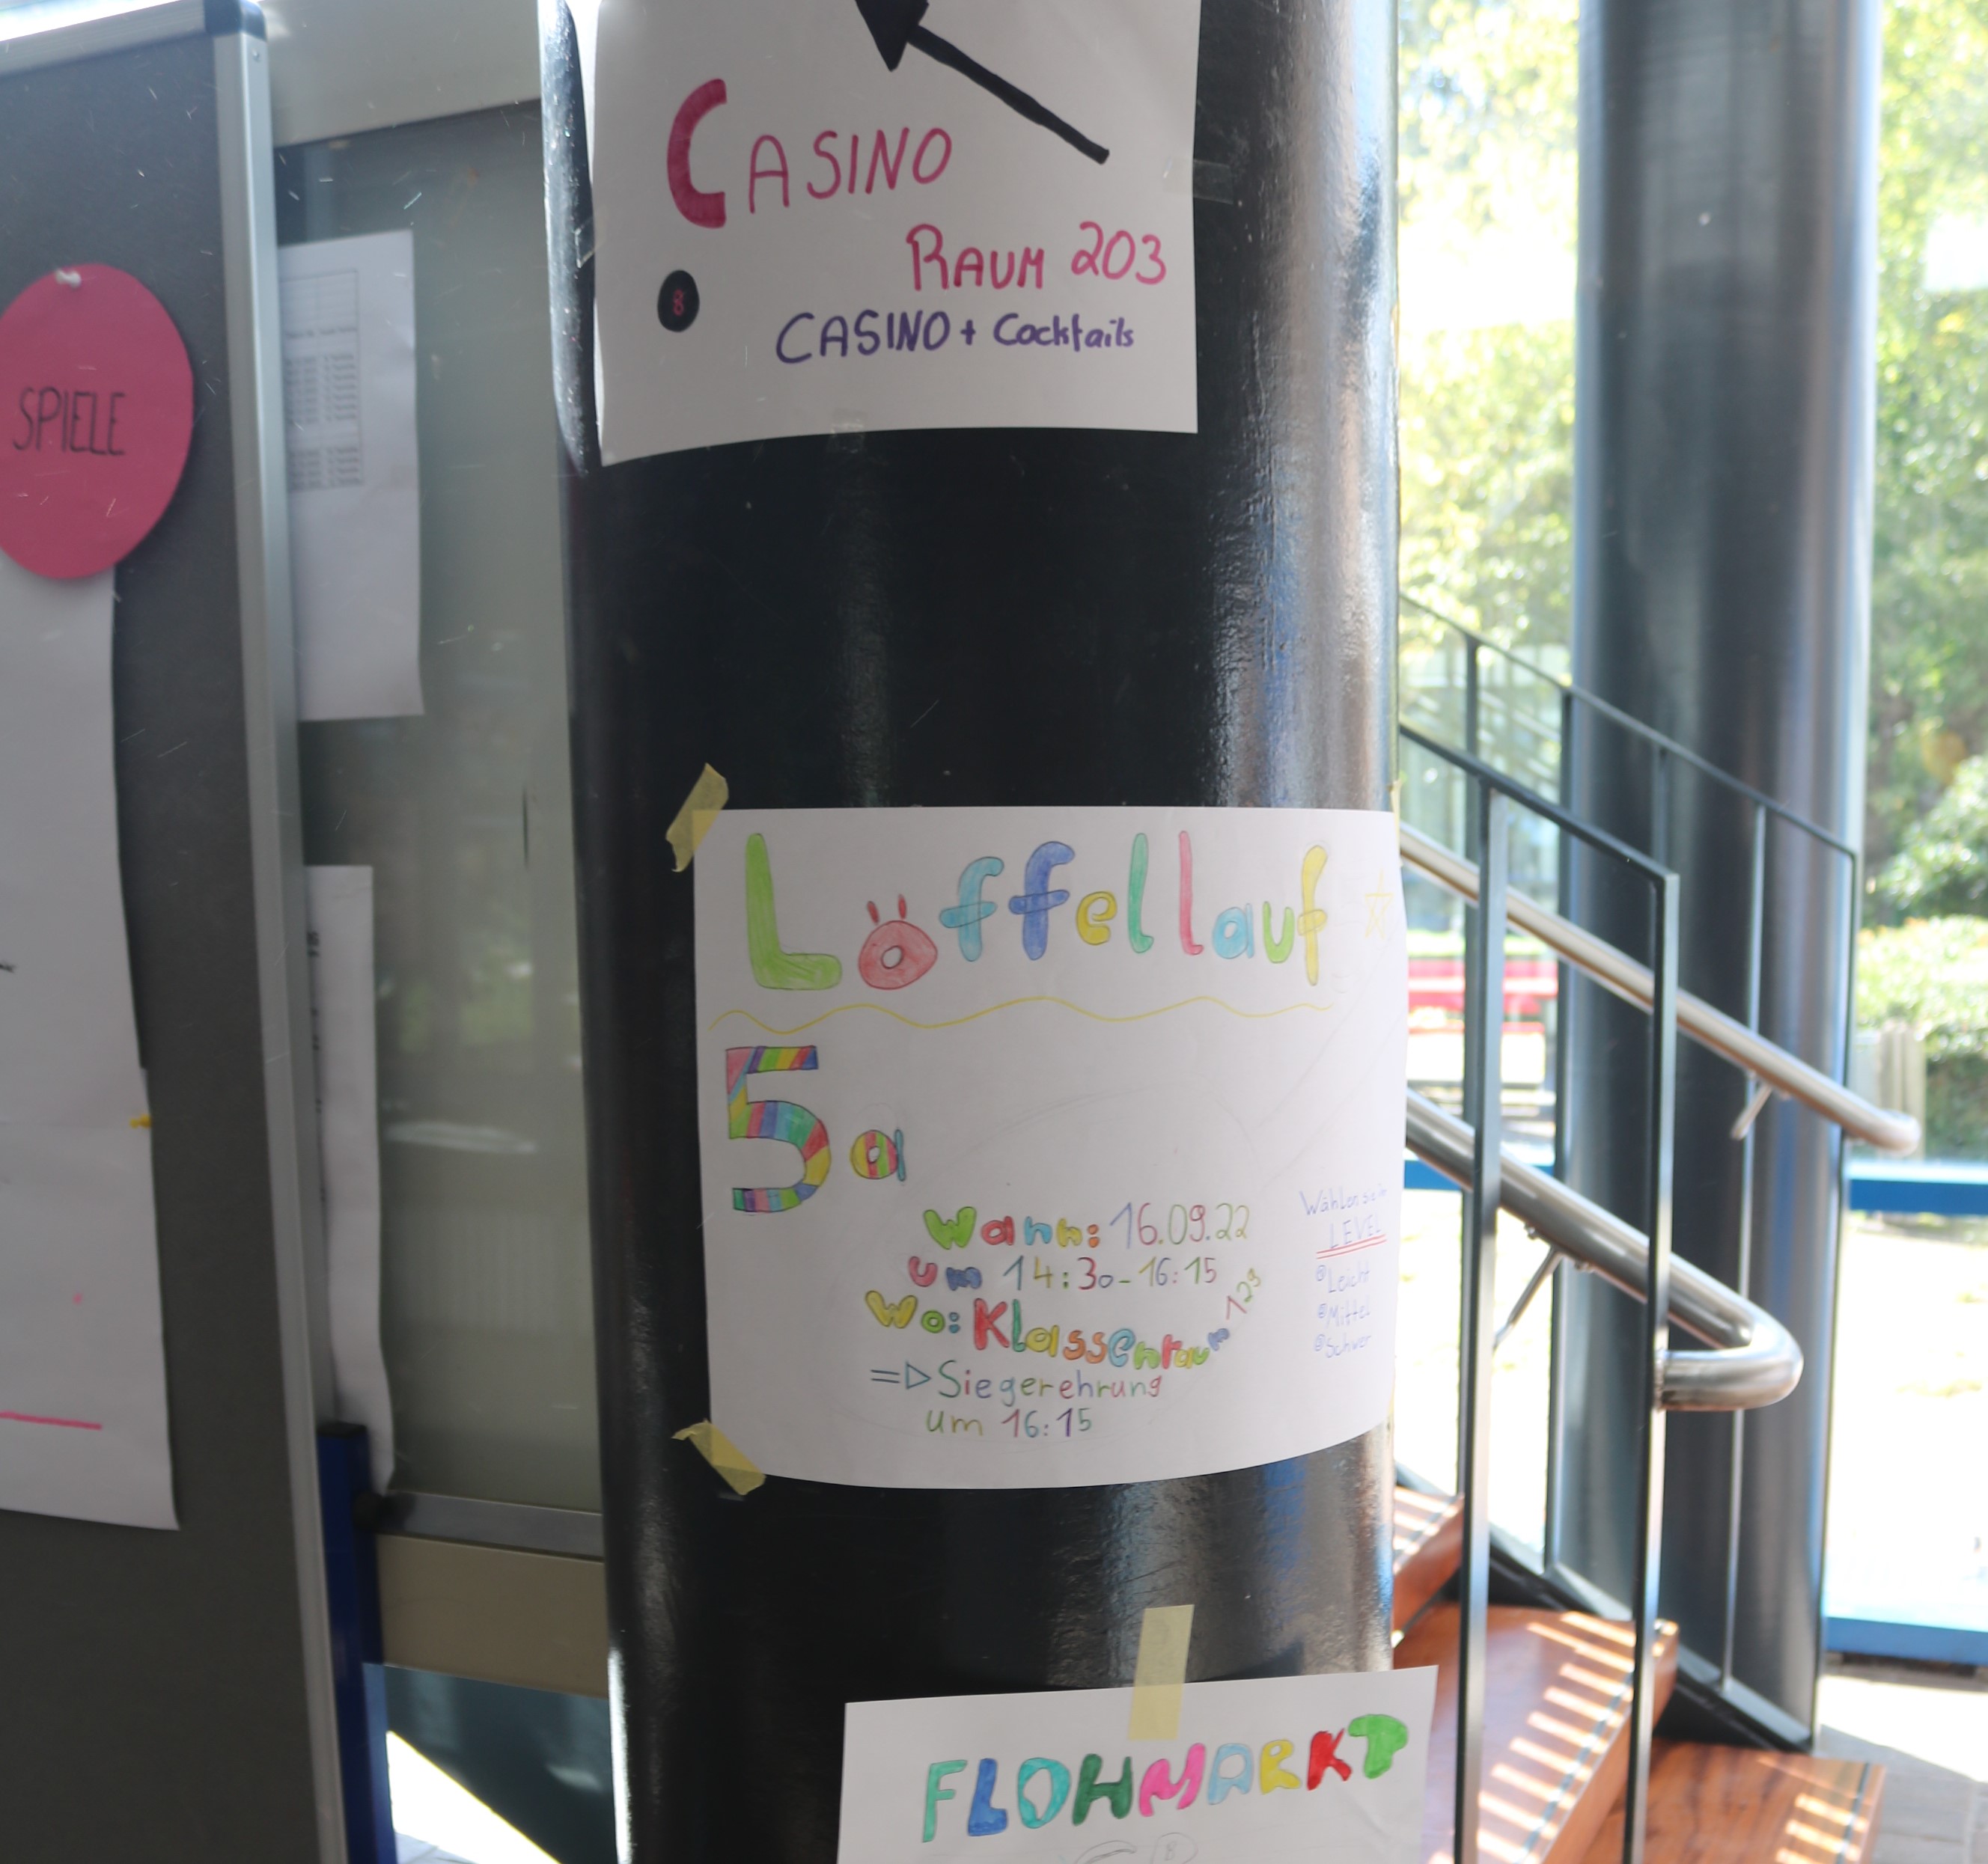 CASINO
RAUM 203
8
CASINO + Cocktails
SPIELE
Löffellauf
5a
Wann: 16.09.22
um 14:30-16:15
Wo: Klassenraum 129
=> Siegerehrung
um 16:15
Wählen sie ihr
LEVEL
Leicht
Mittel
Schwer
FLOHMARKT